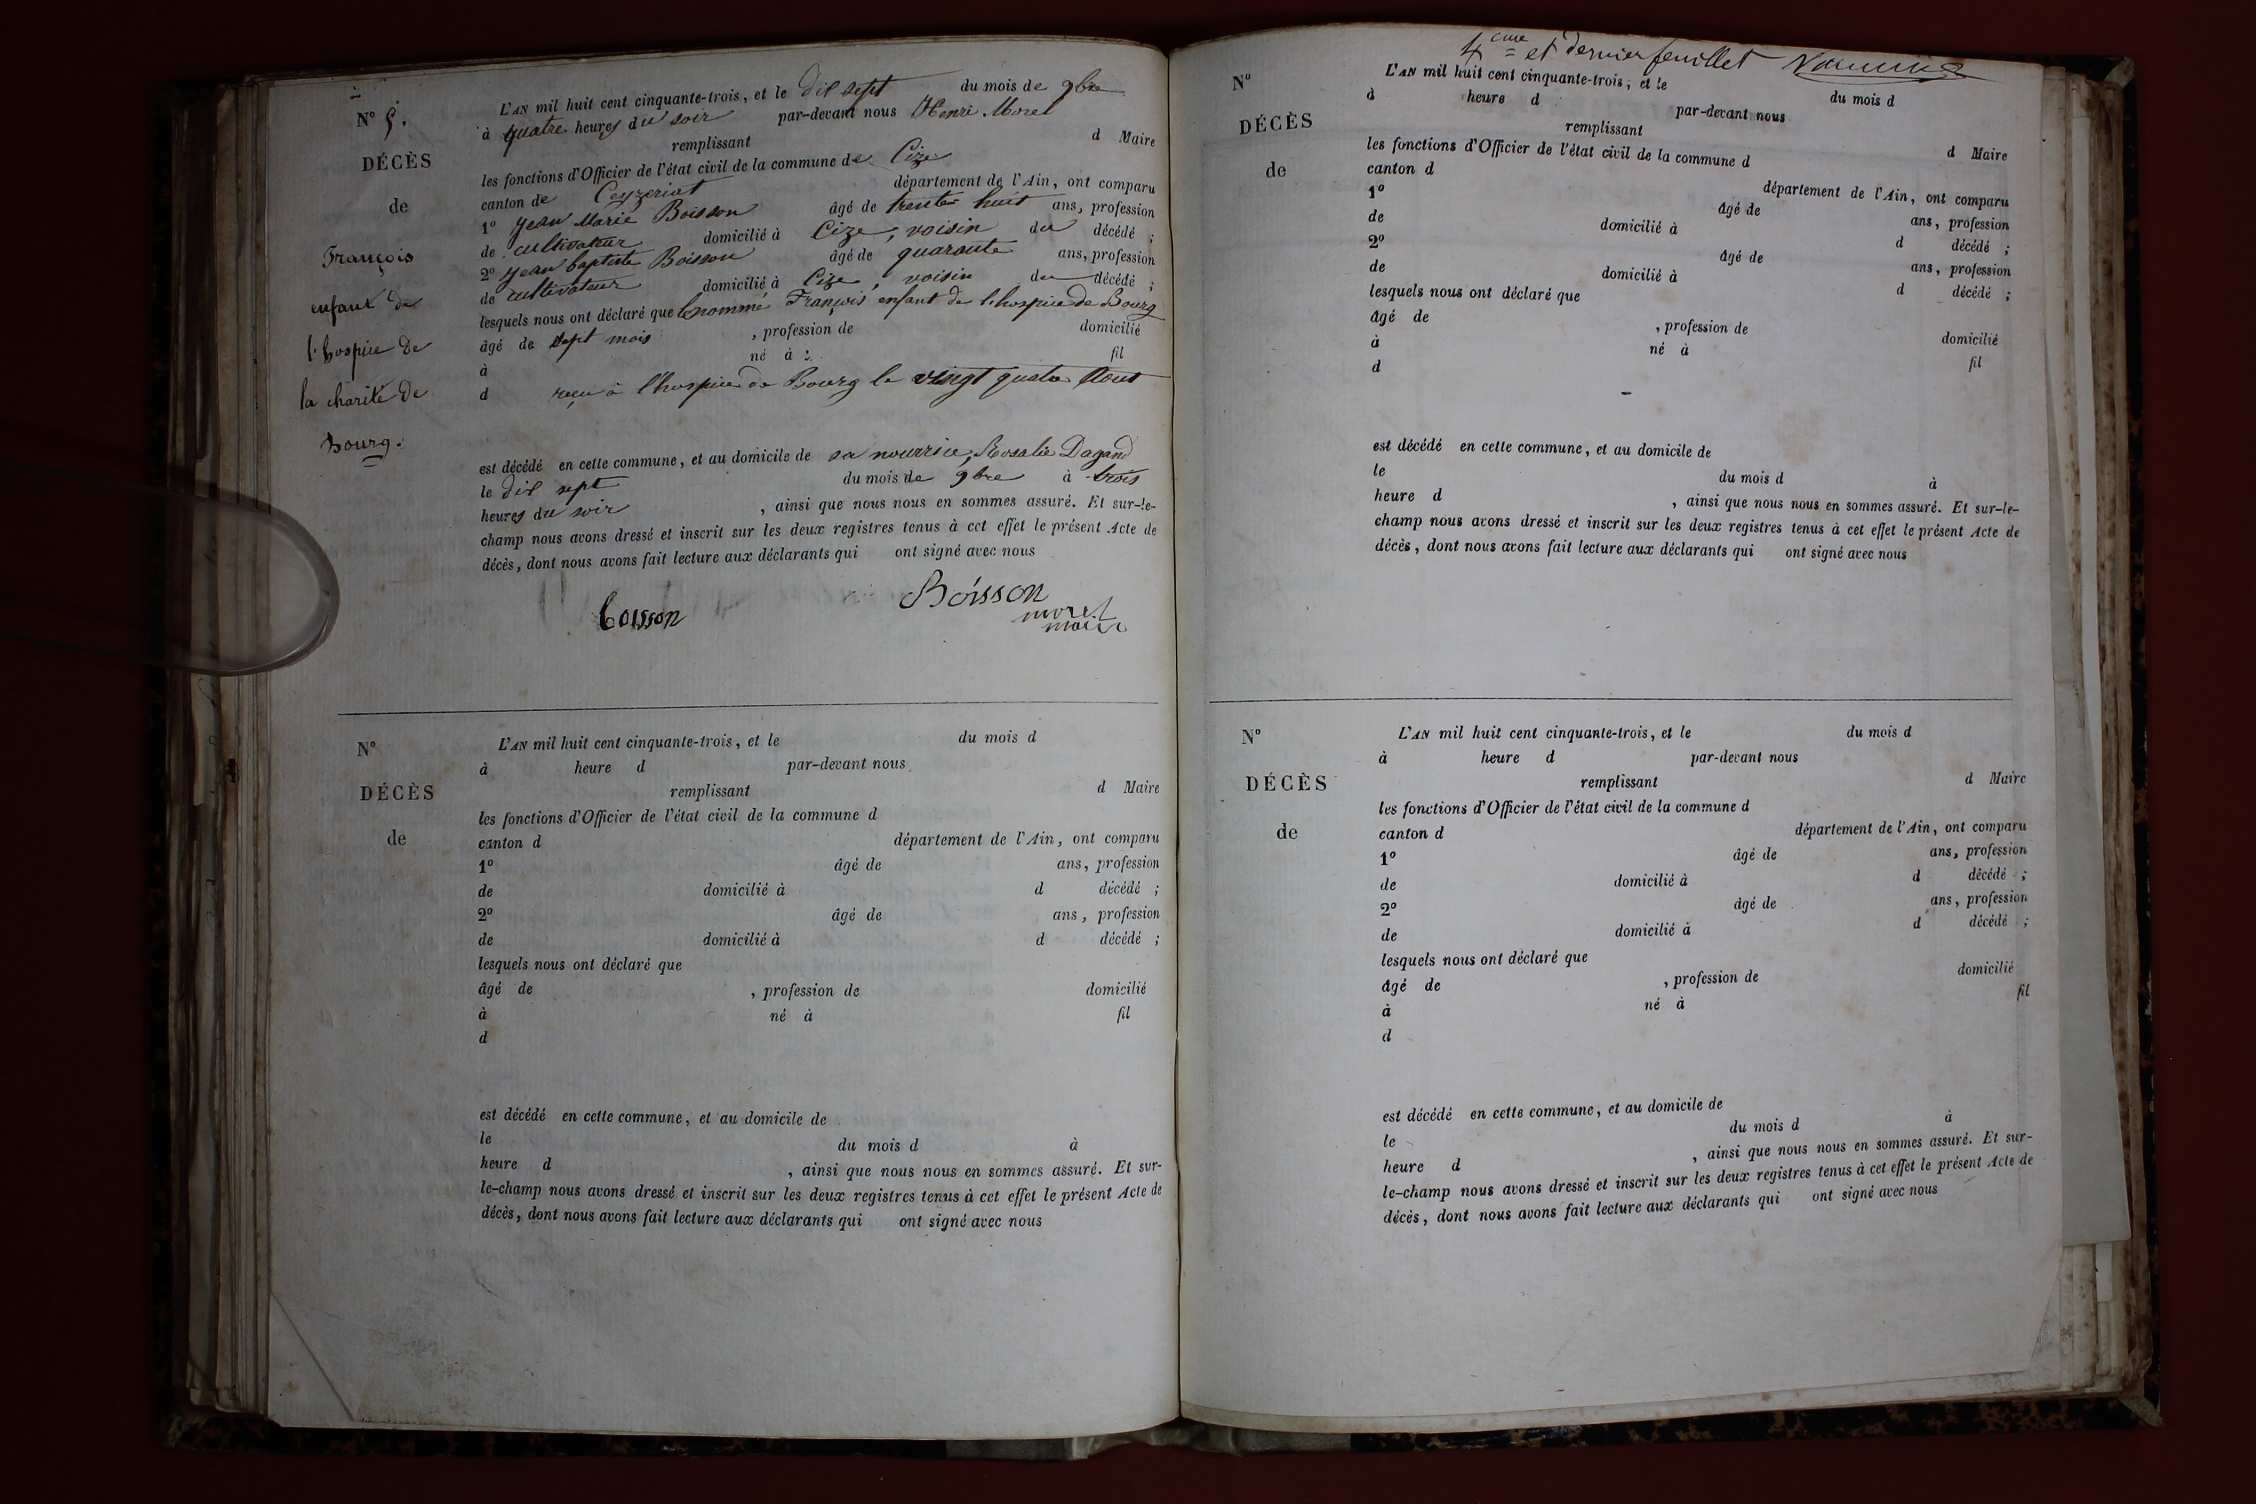 N° 5.
DÉCÈS
de
François
enfant de
l'hospice de
la charité de
Bourg.
L'AN mil huit cent cinquante-trois, et le dix sept du mois de 9bre
à quatre heures du soir par-devant nous Henri Morel
remplissant d Maire
les fonctions d'Officier de l'état civil de la commune de Cize
canton de Ceyzeriat département de l'Ain, ont comparu
1° Jean Marie Boisson âgé de trente huit ans, profession
de cultivateur domicilié à Cize, voisin du décédé ;
2° Jean baptiste Boisson âgé de quarante ans, profession
de cultivateur domicilié à Cize, voisin du décédé ;
lesquels nous ont déclaré que le nommé François enfant de l'hospice de Bourg
âgé de sept mois , profession de domicilié
à né à fil
d reçu à l'hospice de Bourg le vingt quatre Aout
est décédé en cette commune, et au domicile de sa nourrice, Rosalie Dagand
le dix sept du mois de 9bre à trois
heures du soir , ainsi que nous nous en sommes assuré. Et sur-le-
champ nous avons dressé et inscrit sur les deux registres tenus à cet effet le présent Acte de
décès, dont nous avons fait lecture aux déclarants qui ont signé avec nous
boisson Boisson
morel
maire
N°
DÉCÈS
de
L'AN mil huit cent cinquante-trois, et le du mois d
à heure d par-devant nous
remplissant d Maire
les fonctions d'Officier de l'état civil de la commune d
canton d département de l'Ain, ont comparu
1° âgé de ans, profession
de domicilié à d décédé ;
2° âgé de ans, profession
de domicilié à d décédé ;
lesquels nous ont déclaré que
âgé de , profession de domicilié
à né à fil
d
est décédé en cette commune, et au domicile de
le du mois d à
heure d , ainsi que nous nous en sommes assuré. Et sur-
le-champ nous avons dressé et inscrit sur les deux registres tenus à cet effet le présent Acte de
décès, dont nous avons fait lecture aux déclarants qui ont signé avec nous
4eme et dernier feuillet
N°
DÉCÈS
de
L'AN mil huit cent cinquante-trois, et le du mois d
à heure d par-devant nous
remplissant d Maire
les fonctions d'Officier de l'état civil de la commune d
canton d département de l'Ain, ont comparu
1° âgé de ans, profession
de domicilié à d décédé ;
2° âgé de ans, profession
de domicilié à d décédé ;
lesquels nous ont déclaré que
âgé de , profession de domicilié
à né à fil
d
est décédé en cette commune, et au domicile de
le du mois d à
heure d , ainsi que nous nous en sommes assuré. Et sur-le-
champ nous avons dressé et inscrit sur les deux registres tenus à cet effet le présent Acte de
décès, dont nous avons fait lecture aux déclarants qui ont signé avec nous
N°
DÉCÈS
de
L'AN mil huit cent cinquante-trois, et le du mois d
à heure d par-devant nous
remplissant d Maire
les fonctions d'Officier de l'état civil de la commune d
canton d département de l'Ain, ont comparu
1° âgé de ans, profession
de domicilié à d décédé ;
2° âgé de ans, profession
de domicilié à d décédé ;
lesquels nous ont déclaré que
âgé de , profession de domicilié
à né à fil
d
est décédé en cette commune, et au domicile de
le du mois d à
heure d , ainsi que nous nous en sommes assuré. Et sur-
le-champ nous avons dressé et inscrit sur les deux registres tenus à cet effet le présent Acte de
décès, dont nous avons fait lecture aux déclarants qui ont signé avec nous